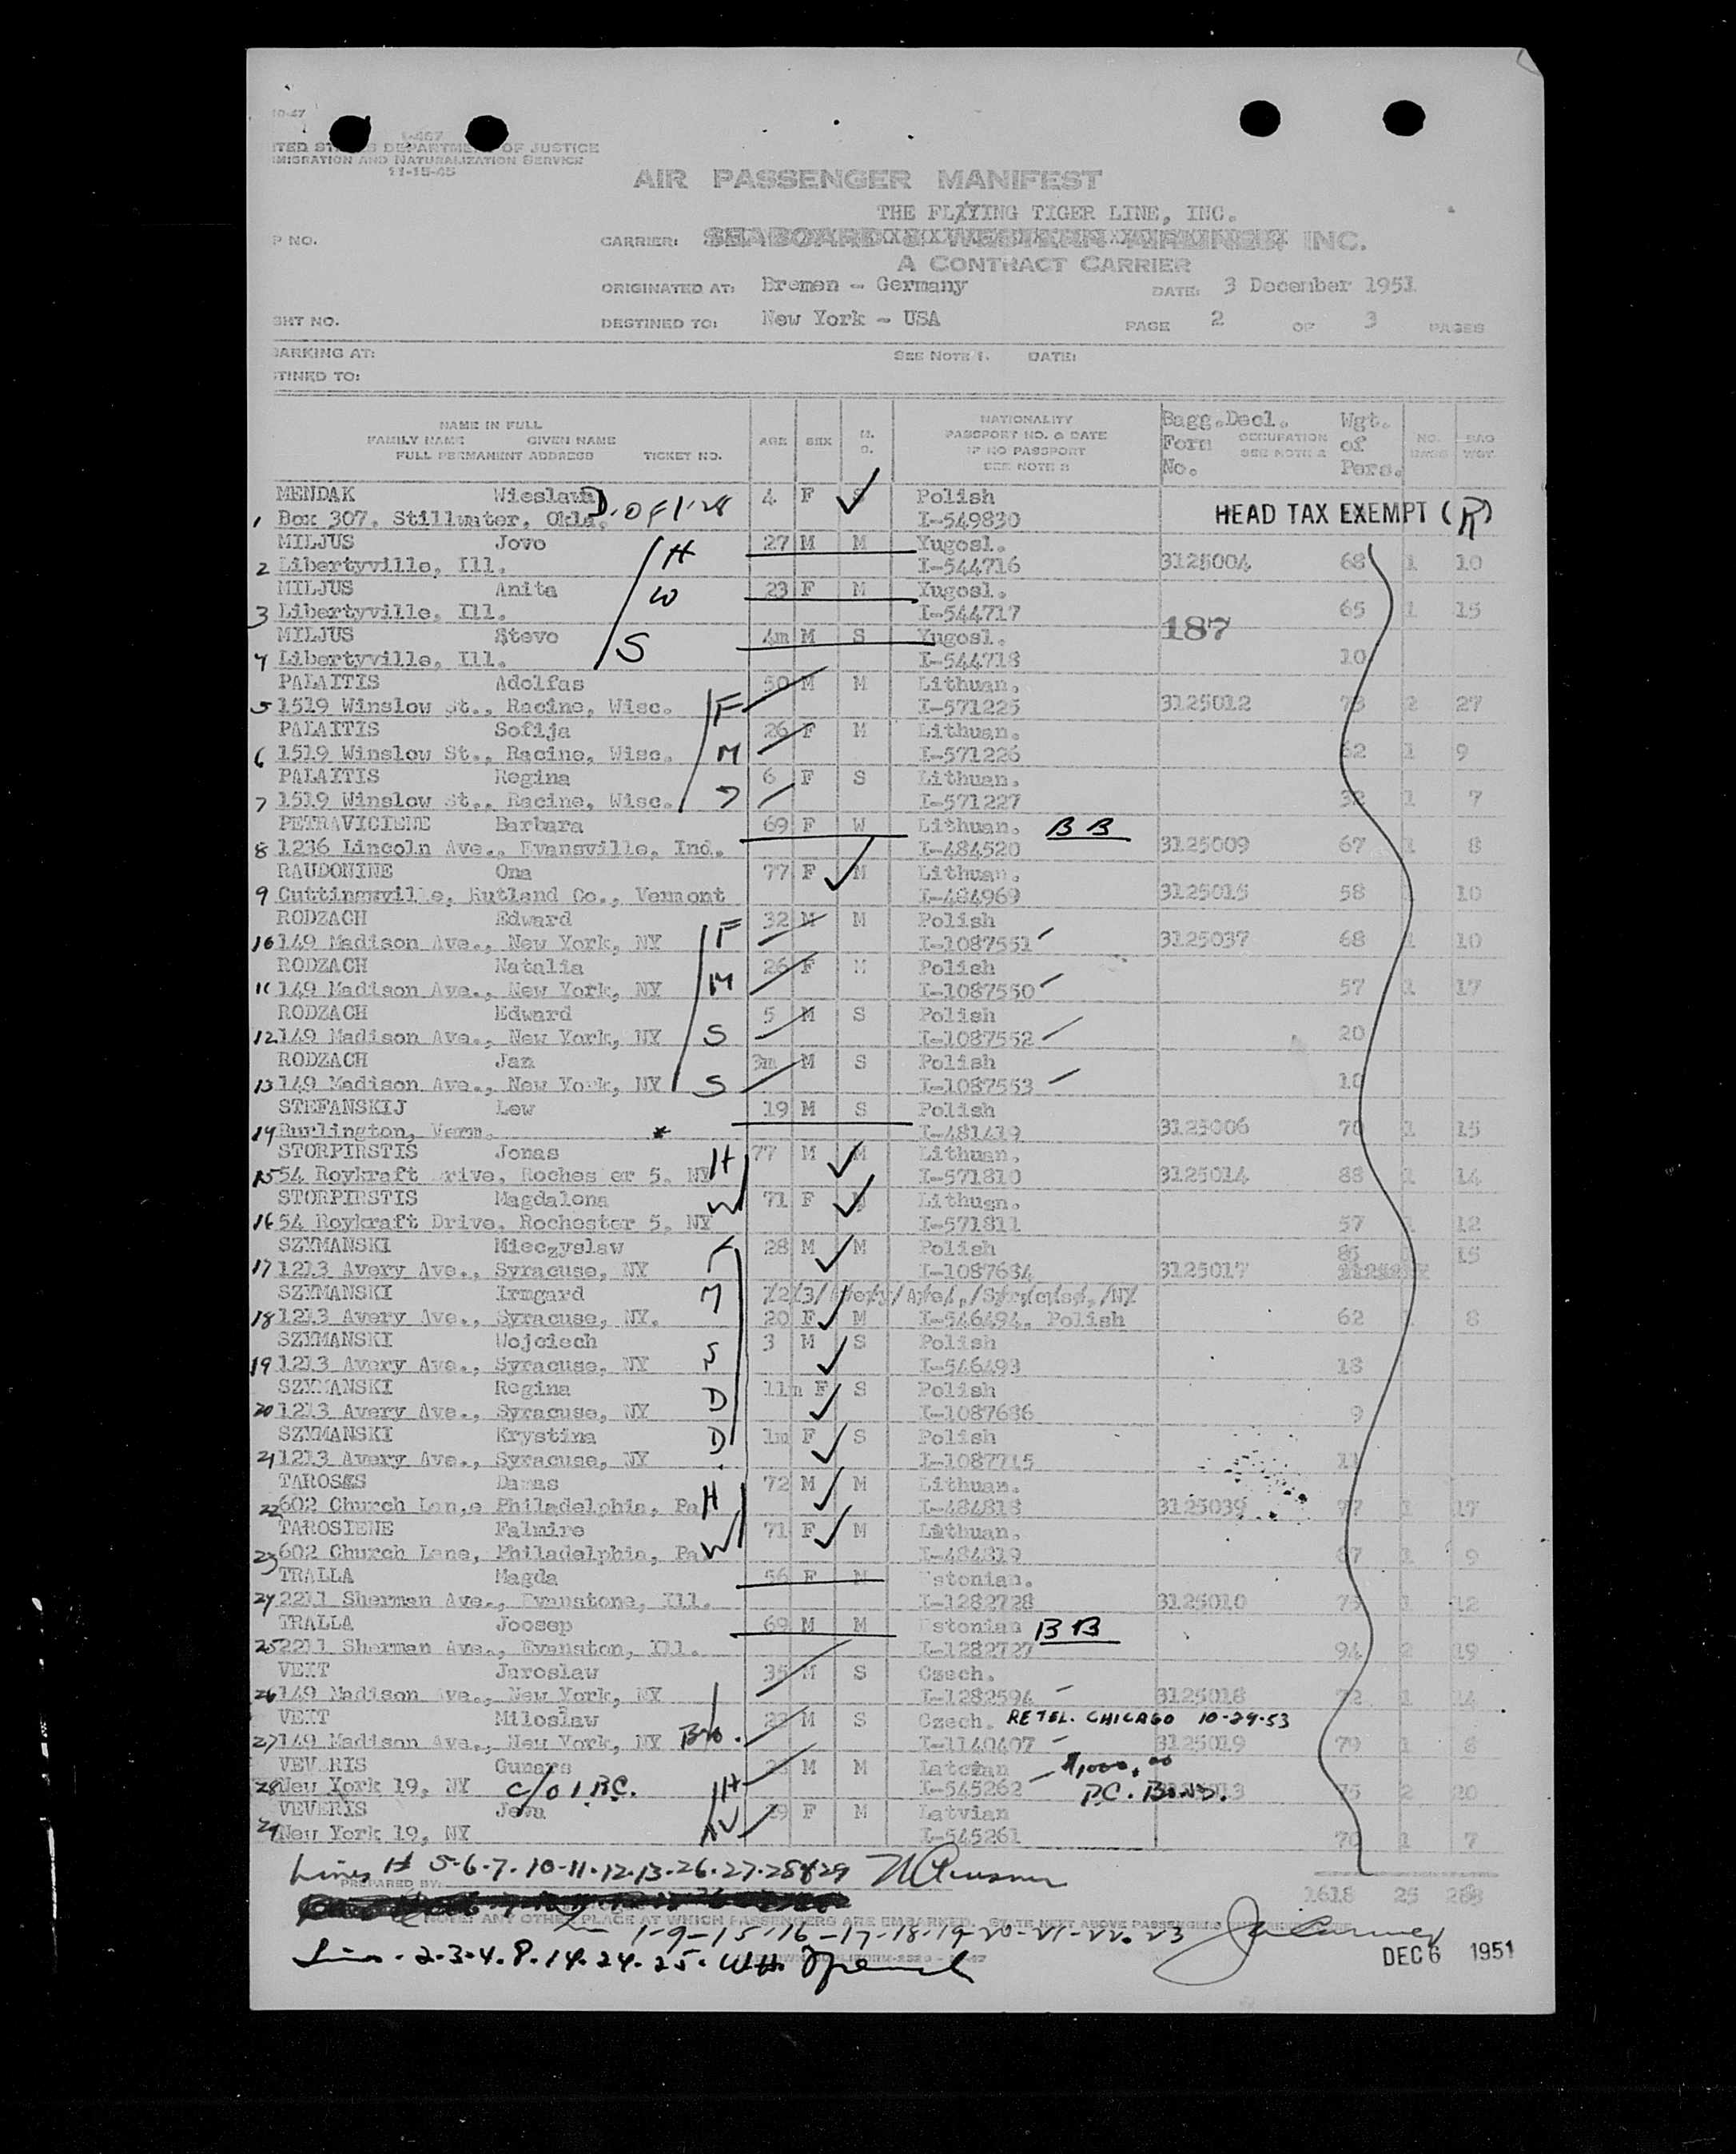 10-47
I-467
ITED STATES DEPARTMENT OF JUSTICE
MIGRATION AND NATURALIZATION SERVICE
11-15-45
AIR PASSENGER MANIFEST
THE FLYING TIGER LINE, INC.
P NO. CARRIER: SEABOARD & WESTERN AIRLINES INC.
A CONTRACT CARRIER
ORIGINATED AT: Bremen - Germany DATE: 3 December 1951
GHT NO. DESTINED TO: New York - USA PAGE 2 OF 3 PAGES
BARKING AT: SEE NOTE 1. DATE:
TINED TO:
NAME IN FULL
FAMILY NAME GIVEN NAME
FULL PERMANENT ADDRESS TICKET NO.
AGE SEX M. S.
NATIONALITY
PASSPORT NO. & DATE
IF NO PASSPORT
SEE NOTE 3
Bagg.Decl. Form No.
OCCUPATION SEE NOTE 2
Wgt. of Pers.
NO. BAGS BAG WGT.
MENDAK Wieslawa 4 F S Polish
1 Box 307, Stillwater, Okla. I-549830 HEAD TAX EXEMPT (R)
MILJUS Jovo H 27 M M Yugosl.
2 Libertyville, Ill. I-544716 3125004 68 1 10
MILJUS Anita W 23 F M Yugosl.
3 Libertyville, Ill. I-544717 65 1 15
187
MILJUS Stevo S 4m M S Yugosl.
4 Libertyville, Ill. I-544718 10
PALAITIS Adolfas F 50 M M Lithuan.
5 1519 Winslow St., Racine, Wisc. I-571225 3125012 73 2 27
PALAITIS Sofija 26 F M Lithuan.
6 1519 Winslow St., Racine, Wisc. M I-571226 62 1 9
PALAITIS Regina 6 F S Lithuan.
7 1519 Winslow St., Racine, Wisc. I-571227 32 1 7
PETRAVICIENE Barbara 69 F W Lithuan. B B
8 1236 Lincoln Ave., Evansville, Ind. I-484520 3125009 67 1 8
RAUDONINE Ona 77 F M Lithuan.
9 Cuttingsville, Rutland Co., Vermont I-484969 3125015 58 10
RODZACH Edward F 32 M M Polish
10 149 Madison Ave., New York, NY I-1087551 3125037 68 1 10
RODZACH Natalia 26 F M Polish
11 149 Madison Ave., New York, NY M I-1087550 57 1 17
RODZACH Edward 5 M S Polish
12 149 Madison Ave., New York, NY S I-1087552 20
RODZACH Jan 3m M S Polish
13 149 Madison Ave., New York, NY S I-1087553 10
STEFANSKIJ Lew 19 M S Polish
14 Burlington, Verm. * I-481419 3125006 70 1 15
STORPIRSTIS Jonas H 77 M M Lithuan.
15 54 Roykraft Drive, Rochester 5, NY I-571810 3125014 88 1 14
STORPIRSTIS Magdalena W 71 F M Lithuan.
16 54 Roykraft Drive, Rochester 5, NY I-571811 57 12
SZYMANSKI Mieczyslaw F 28 M M Polish 85 15
17 1213 Avery Ave., Syracuse, NY I-1087684 3125017
SZYMANSKI Irmgard M 1213 Avery Ave., Syracuse, NY
18 1213 Avery Ave., Syracuse, NY. 20 F M I-546494, Polish 62 8
SZYMANSKI Wojciech 3 M S Polish
19 1213 Avery Ave., Syracuse, NY S I-546493 18
SZYMANSKI Regina 11m F S Polish
20 1213 Avery Ave., Syracuse, NY D I-1087686 9
SZYMANSKI Krystina D 1m F S Polish
21 1213 Avery Ave., Syracuse, NY I-1087715 11
TAROSAS Damas 72 M M Lithuan.
22 602 Church Lan,e Philadelphia, Pa H I-484818 3125039 77 1 17
TAROSIENE Palmire 71 F M Lithuan.
23 602 Church Lane, Philadelphia, Pa W I-484819 67 1 9
TRALLA Magda 56 F M Estonian.
24 2211 Sherman Ave., Evanstone, Ill. I-1282728 3125010 75 1 12
TRALLA Joosep 69 M M Estonian B B
25 2211 Sherman Ave., Evanston, Ill. I-1282727 94 2 19
VEIT Jaroslaw 35 M S Czech.
26 149 Madison Ave., New York, NY I-1282594 3125018 72 1 14
VEIT Miloslaw M S Czech. RE TEL. CHICAGO 10-29-53
27 149 Madison Ave., New York, NY Bro. I-1140407 3125019 79 1 6
VEVERIS Gunars M M $1,000.00
28 New York 19, NY C/O I.B.C. H I-545262 P.C. BOND. 75 2 20
VEVERIS Jeva 29 F M Latvian
29 New York 19, NY W I-545261 70 1 7
Lines # 5-6-7-10-11-12-13-26-27-28&29
PREPARED BY: 1618 25 288
NOTE: ANY OTHER PLACE AT WHICH PASSENGERS ARE EMBARKED, STATE NEXT ABOVE PASSENGERS
1-9-15-16-17-18-19-20-21-22-23
Lines - 2-3-4-8-14-24-25-
DEC 6 1951